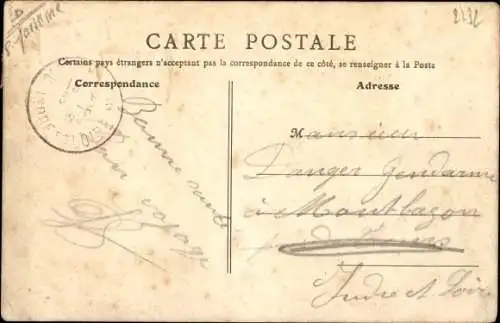 2232
CARTE POSTALE
Certains pays étrangers n'acceptant pas la correspondance de ce côté, se renseigner à la Poste
Correspondance
Adresse
Bonne santé
bon voyage
INDRE-ET-LOIRE
Monsieur
Danger Gendarme
à Montbazon
Indre et Loire